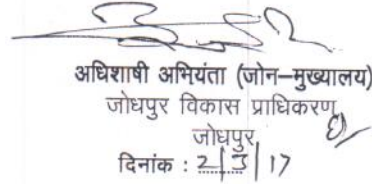 अधिशाषी अभियंता (जोन–मुख्यालय)
जोधपुर विकास प्राधिकरण,
जोधपुर
दिनांक : 2/3/17